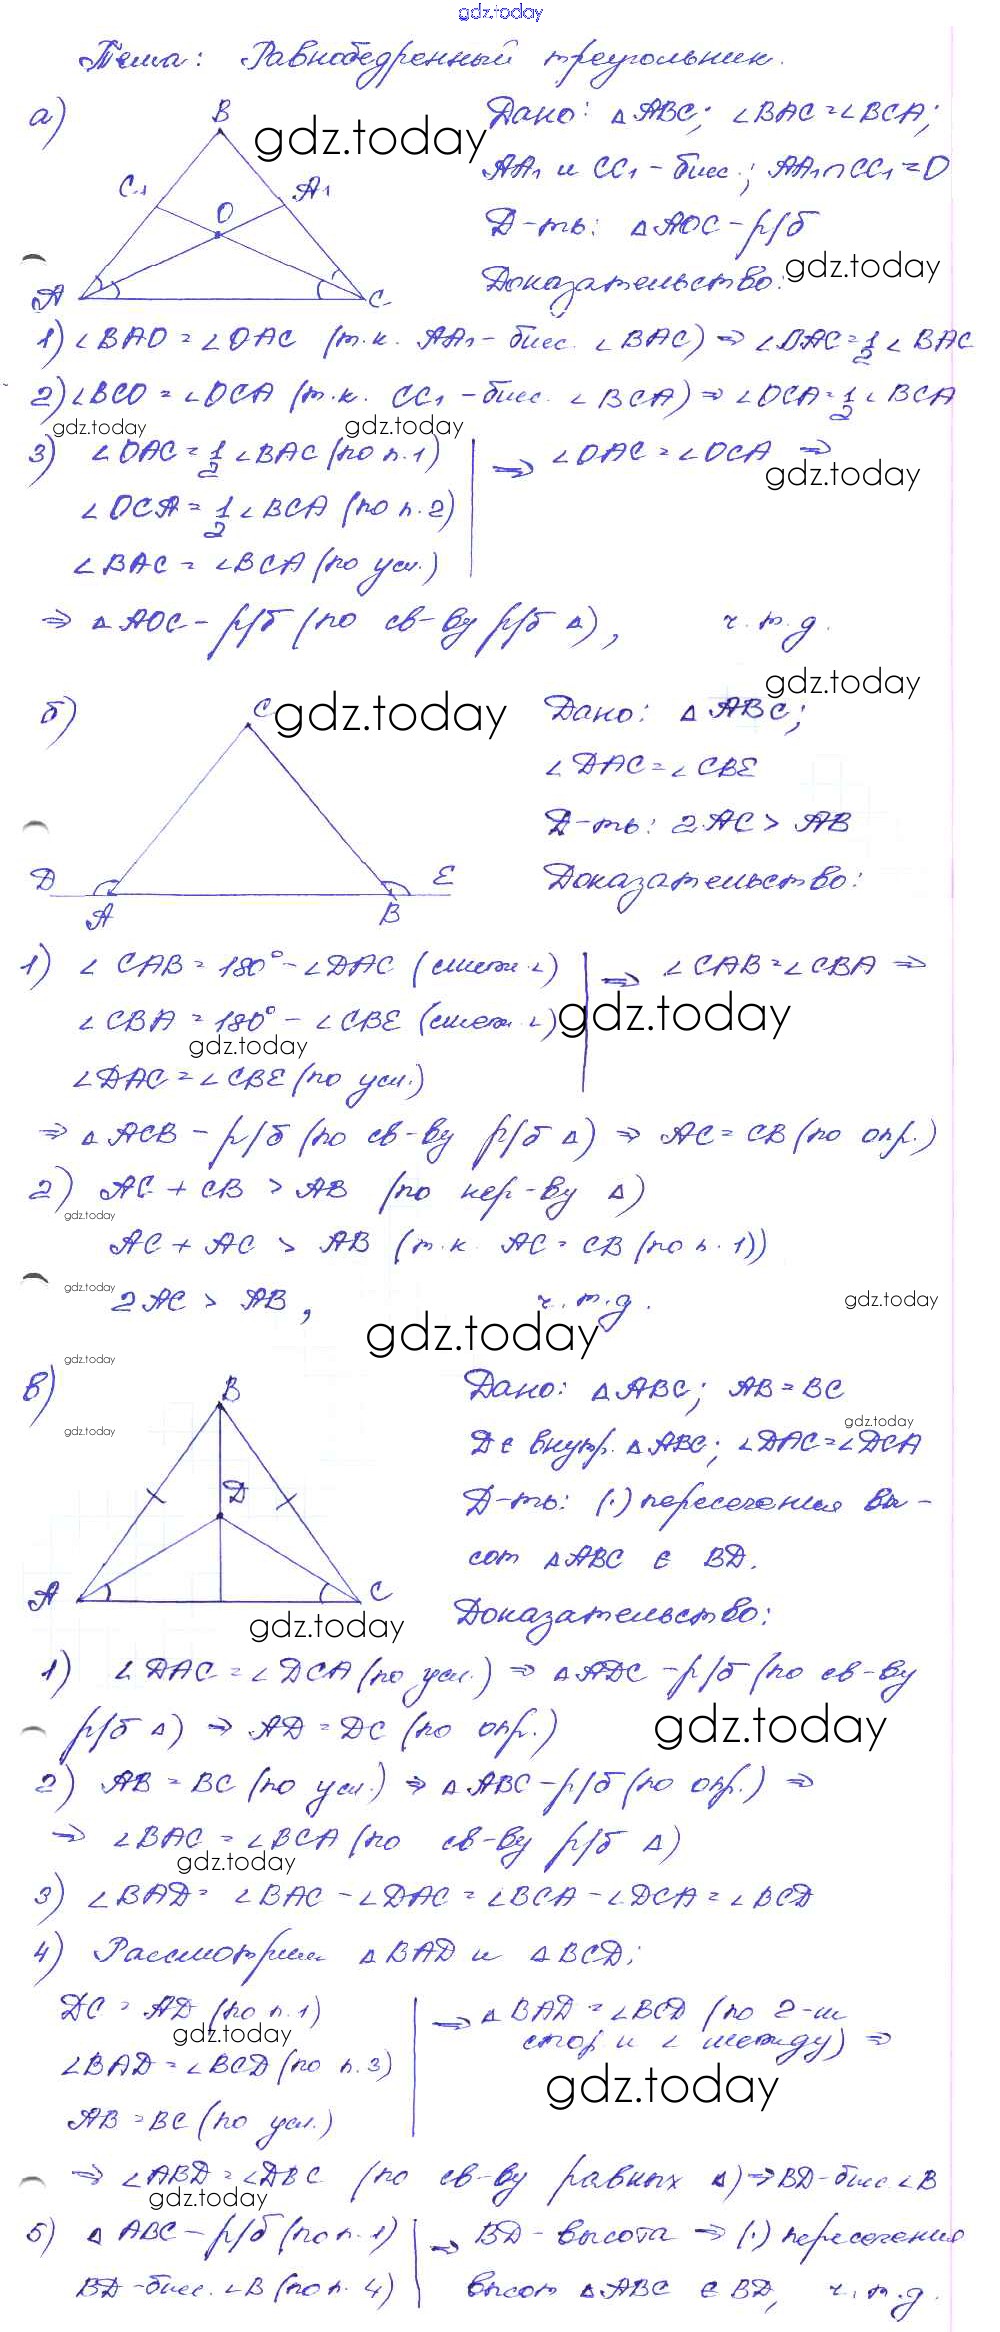 gdz.today
Тема: Равнобедренный треугольник.
а) B gdz.today Дано: △ABC; ∠BAC=∠BCA;
C₁ A₁ AA₁ и CC₁ – бисс.; AA₁∩CC₁=O
O Д-ть: △AOC – р/б
A C Доказательство: gdz.today
1) ∠BAO = ∠OAC (т.к. AA₁ – бисс. ∠BAC) ⇒ ∠OAC = 1/2 ∠BAC
2) ∠BCO = ∠OCA (т.к. CC₁ – бисс. ∠BCA) ⇒ ∠OCA = 1/2 ∠BCA
gdz.today gdz.today
3) ∠OAC = 1/2 ∠BAC (по п.1) ⇒ ∠OAC = ∠OCA ⇒
gdz.today
∠OCA = 1/2 ∠BCA (по п.2)
∠BAC = ∠BCA (по усл.)
⇒ △AOC – р/б (по св-ву р/б △), ч.т.д.
gdz.today
б) C gdz.today Дано: △ABC;
∠DAC = ∠CBE
Д-ть: 2AC > AB
D A B E Доказательство:
1) ∠CAB = 180° – ∠DAC (смежн. ∠) ⇒ ∠CAB = ∠CBA ⇒
∠CBA = 180° – ∠CBE (смежн. ∠) gdz.today
gdz.today
∠DAC = ∠CBE (по усл.)
⇒ △ACB – р/б (по св-ву р/б △) ⇒ AC = CB (по опр.)
2) AC + CB > AB (по нер-ву △)
gdz.today
AC + AC > AB (т.к. AC = CB (по п.1))
gdz.today
2AC > AB, ч.т.д. gdz.today
gdz.today
gdz.today
в) B Дано: △ABC; AB = BC
gdz.today gdz.today
D D∈ внутр. △ABC; ∠DAC = ∠DCA
Д-ть: (·) пересечения вы-
сот △ABC ∈ BD.
A C Доказательство:
gdz.today
1) ∠DAC = ∠DCA (по усл.) ⇒ △ADC – р/б (по св-ву
р/б △) ⇒ AD = DC (по опр.) gdz.today
2) AB = BC (по усл.) ⇒ △ABC – р/б (по опр.) ⇒
⇒ ∠BAC = ∠BCA (по св-ву р/б △)
gdz.today
3) ∠BAD = ∠BAC – ∠DAC = ∠BCA – ∠DCA = ∠BCD
4) Рассмотрим △BAD и △BCD:
DC = AD (по п.1) ⇒ △BAD = ∠BCD (по 2-м
gdz.today стор. и ∠ между) ⇒
∠BAD = ∠BCD (по п.3) gdz.today
AB = BC (по усл.)
⇒ ∠ABD = ∠DBC (по св-ву равных △) ⇒ BD – бисс. ∠B
gdz.today
5) △ABC – р/б (по п.1) ⇒ BD – высота ⇒ (·) пересечения
BD – бисс. ∠B (по п.4) высот △ABC ∈ BD, ч.т.д.